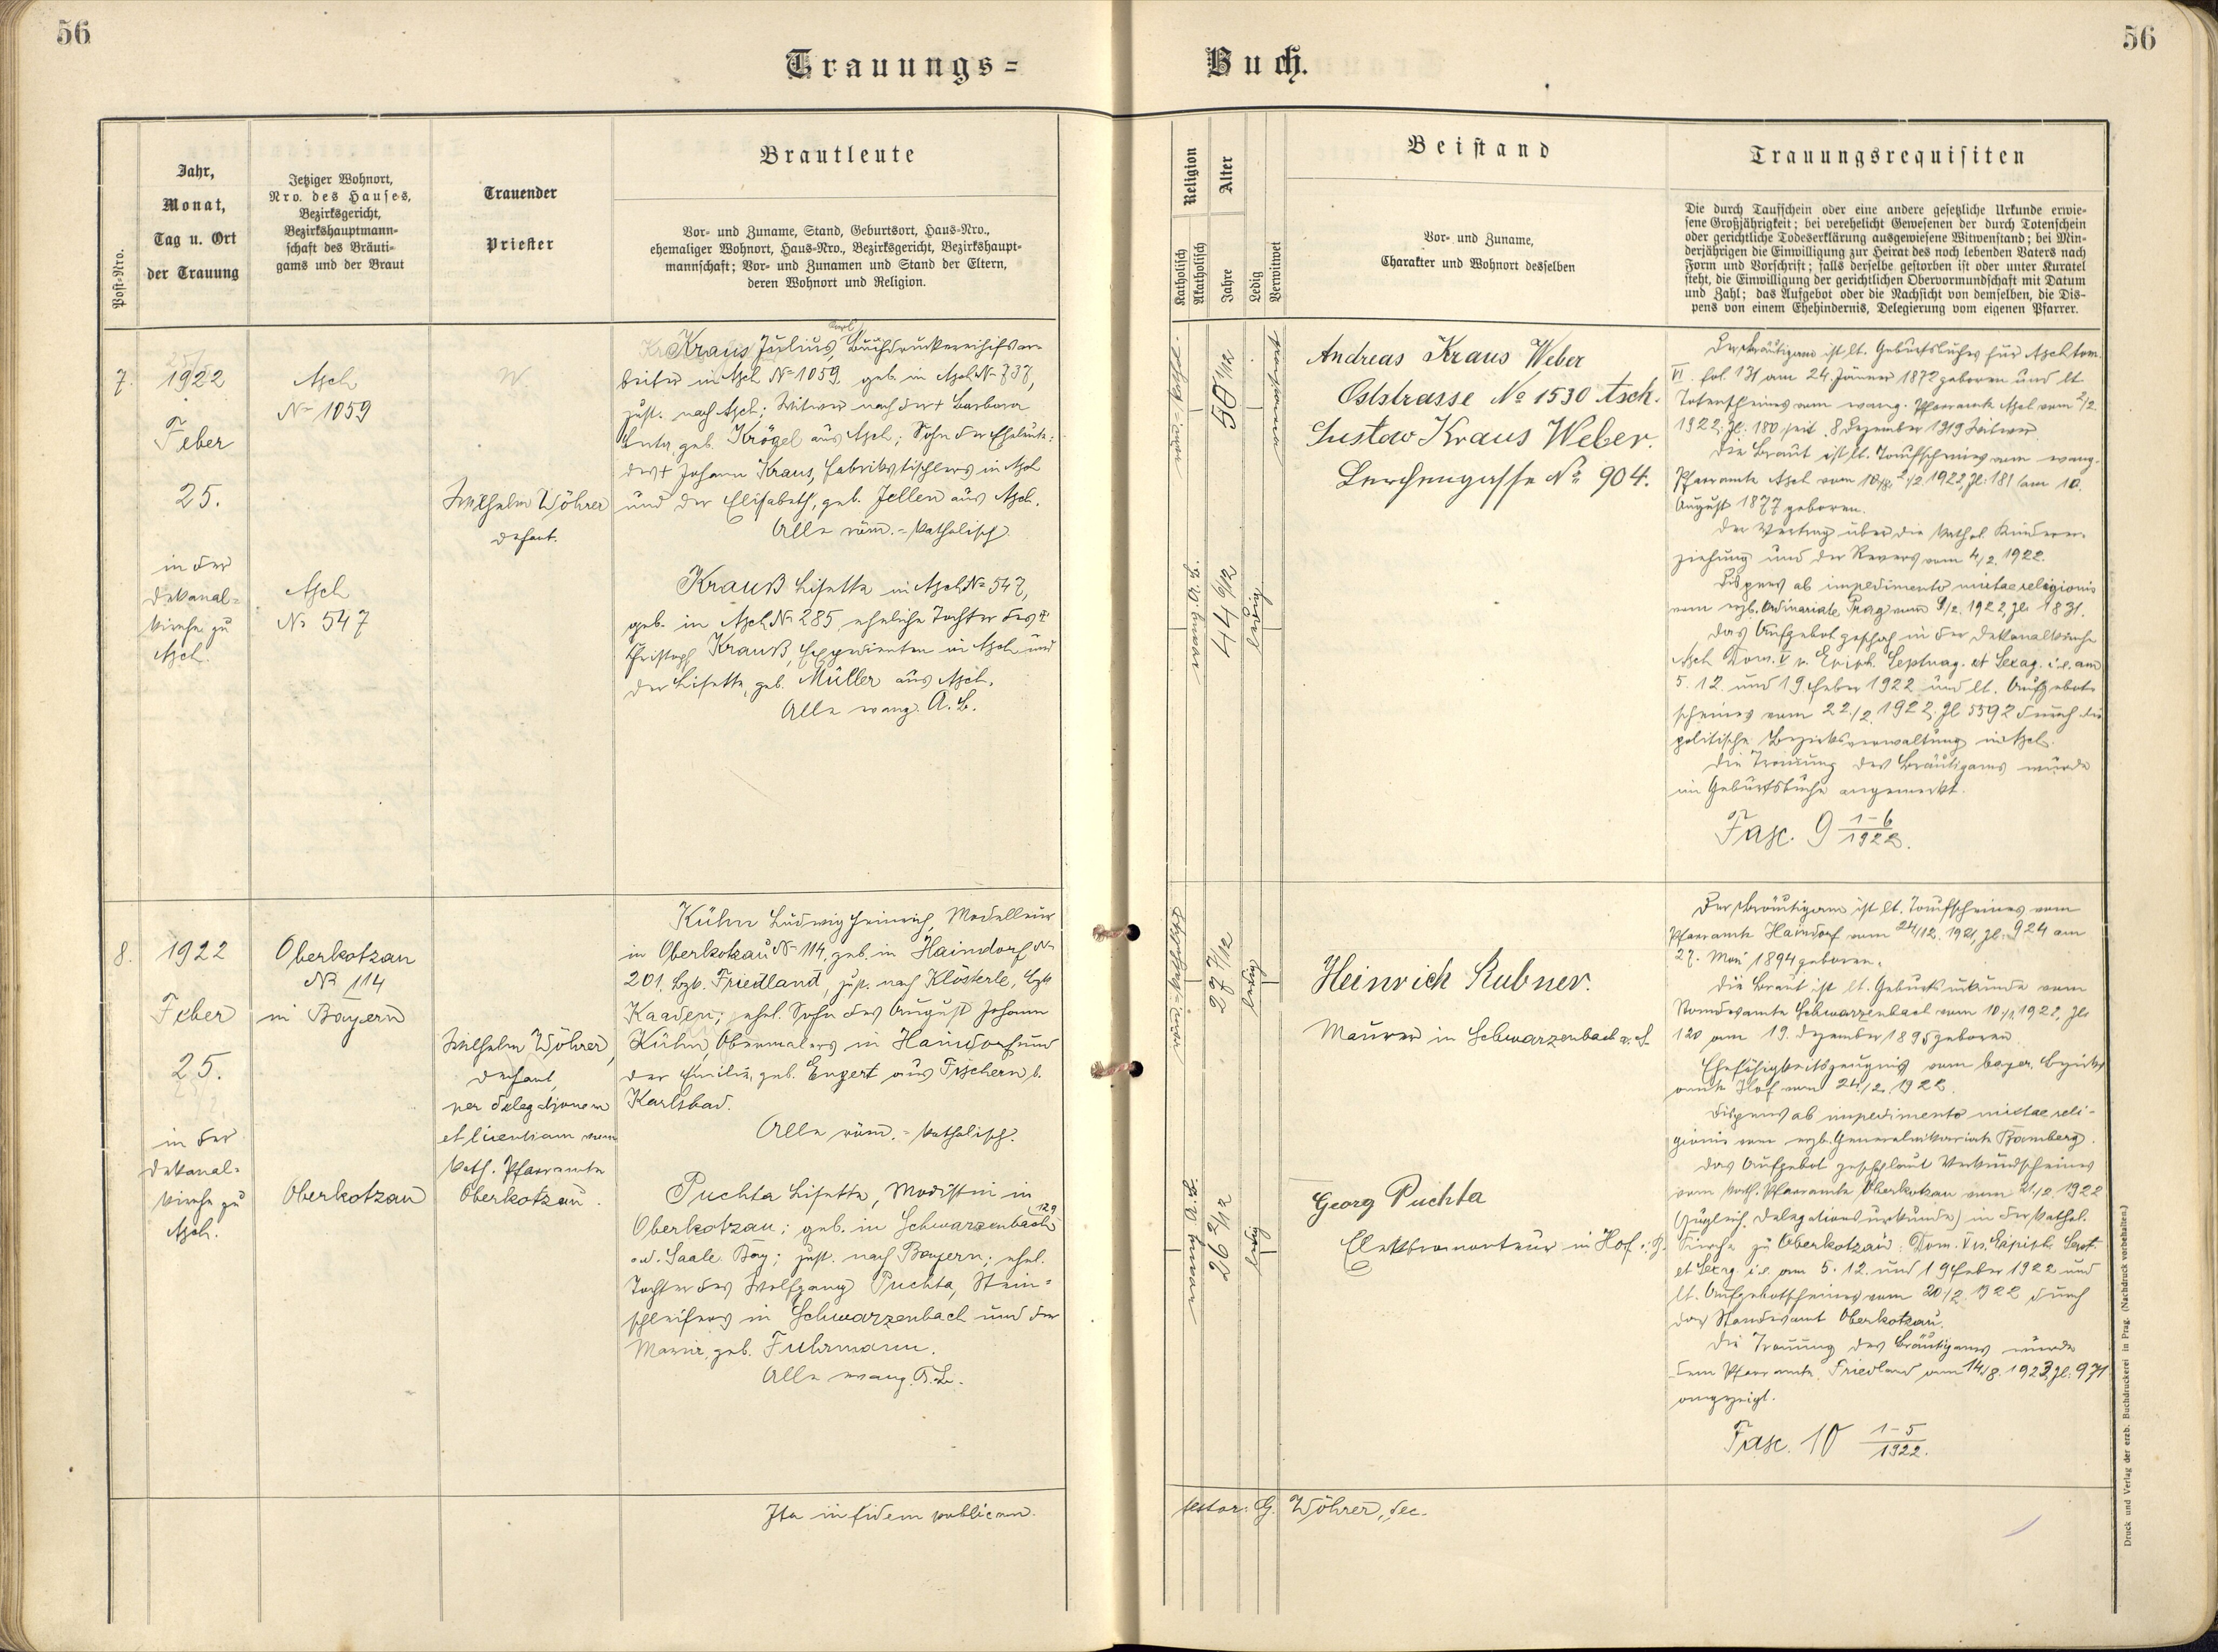 56
56
Trauungs=
Buch.
Post-Nro.
Jahr,
Monat,
Tag u. Ort
der Trauung
Jetziger Wohnort,
Nro. des Hauses,
Bezirksgericht,
Bezirkshauptmann=
schaft des Bräuti=
gams und der Braut
Trauender
Priester
Brautleute
Vor= und Zuname, Stand, Geburtsort, Haus=Nro.,
ehemaliger Wohnort, Haus=Nro., Bezirksgericht, Bezirkshaupt=
mannschaft; Vor= und Zunamen und Stand der Eltern,
deren Wohnort und Religion.
Religion
Katholisch
Akatholisch
Alter
Jahre
Ledig
Verwitwet
Beistand
Vor= und Zuname,
Charakter und Wohnort desselben
Trauungsrequisiten
Die durch Taufschein oder eine andere gesetzliche Urkunde erwie=
sene Großjährigkeit; bei verehelicht Gewesenen der durch Totenschein
oder gerichtliche Todeserklärung ausgewiesene Witwenstand; bei Min=
derjährigen die Einwilligung zur Heirat des noch lebenden Vaters nach
Form und Vorschrift; falls derselbe gestorben ist oder unter Kuratel
steht, die Einwilligung der gerichtlichen Obervormundschaft mit Datum
und Zahl; das Aufgebot oder die Nachsicht von demselben, die Dis=
pens von einem Ehehindernis, Delegierung vom eigenen Pfarrer.
7.
1922
Feber
25.
in der
Dekanal=
kirche zu
Asch.
Asch
No 1059
Asch
No 547
Wilhelm Wöhrer
Dechant.
Karl
Kraus Julius, Buchdruckereihilfsar=
beiter in Asch No 1059, geb. in Asch No 737,
zust. nach Asch; Witwer nach der † Barbara
geb. Krögel aus Asch; Sohn der Eheleute:
des † Johann Kraus, Fabrikstischlers in Asch
und der Elisabeth, geb. Jellen aus Asch.
Alle röm.=katholisch.
Krauß Lisette in Asch No 547,
geb. in Asch No 285, eheliche Tochter des †
Christoph Krauß, Expedienten in Asch und
der Lisette, geb. Müller aus Asch.
Alle evang. A. B.
50 1/12
44 6/12
ledig
Andreas Kraus Weber
Oststrasse No 1530 Asch.
Gustav Kraus Weber.
Lerchengasse No 904.
Der Bräutigam ist lt. Geburtsbuches für Asch tom.
VI. fol. 131 am 24. Jänner 1872 geboren und lt.
Totenscheines vom evang. Pfarramte Asch vom 2/2
1922, Zl. 180 seit 8. Dezember 1919 Witwer.
Die Braut ist lt. Taufscheines vom evang.
Pfarramte Asch vom 2/2 1922, Zl. 181 am 10.
August 1877 geboren.
Der Vertrag über die kathol. Kinderer=
ziehung und der Revers vom 4/2 1922.
Dispens ab impedimento mixtae religionis
vom erzb. Ordinariate Prag vom 9/2 1922, Zl. 1831.
Das Aufgebot geschah in der Dekanalkirche
Asch Dom. V p. Epiph. Septuag. et Sexag. i. e. am
5. 12. und 19. Feber 1922 und lt. Aufgebots=
scheines vom 22./2. 1922, Zl 5592 durch die
politische Bezirksverwaltung in Asch.
Die Trauung des Bräutigams wurde
im Geburtsbuche angemerkt.
Fasc. 9 1-6/1922.
8.
1922
Feber
25.
in der
Dekanal=
kirche zu
Asch.
Oberkotzau
No 114
in Bayern
Oberkotzau
Wilhelm Wöhrer,
Dechant,
per delegationem
et licentiam vom
kath. Pfarramte
Oberkotzau.
Kühn Ludwig Heinrich, Modelleur
in Oberkotzau No 114, geb. in Haindorf No
201, Bzk. Friedland, zust. nach Klösterle, Bzk
Kaaden; ehel. Sohn des August Johann
Kühn, Obermalers in Haindorf und
der Emilie, geb. Engert aus Fischern b.
Karlsbad.
Alle röm.=katholisch.
Puchta Lisette, Modistin in
Oberkotzau; geb. in Schwarzenbach 129
a. d. Saale Bay; zust. nach Bayern; ehel.
Tochter des Wolfgang Puchta, Stein=
schleifers in Schwarzenbach und der
Marie, geb. Fuhrmann.
Alle evang. A. B.
27 9/12
ledig
26 2/12
ledig
Heinrich Rubner.
Maurer in Schwarzenbach a. S.
Georg Puchta
Elektromonteur in Hof
Der Bräutigam ist lt. Taufscheines vom
Pfarramte Haindorf vom 24/12. 1921, Zl. 924 am
27. Mai 1894 geboren.
Die Braut ist lt. Geburtsurkunde vom
Standesamte Schwarzenbach vom 1922, Zl.
120 am 19. Dezember 1895 geboren.
Ehefähigkeitszeugnis vom bayer. Bezirks
amte Hof vom 24./2. 1922.
Dispens ab impedimento mixtae reli=
gionis vom erzb. Generalvikariate Bamberg.
Das Aufgebot geschah laut Verkündscheines
vom kath. Pfarramte Oberkotzau vom 21./2. 1922
(zugleich Delegationsurkunde) in der kathol.
Kirche zu Oberkotzau: Dom. V p. Epiph. Sept.
et Sexag. i. e. am 5. 12. und 19. Feber 1922 und
lt. Aufgebotscheines vom 20./2. 1922 durch
das Standesamt Oberkotzau.
Die Trauung des Bräutigams wurde
dem Pfarramte Friedland am 14/8. 1923, Zl. 971
angezeigt.
Fasc. 10 1-5/1922.
Ita in fidem publicam.
testor: G. Wöhrer, Dec.
Druck und Verlag der erzb. Buchdruckerei in Prag. (Nachdruck vorbehalten.)